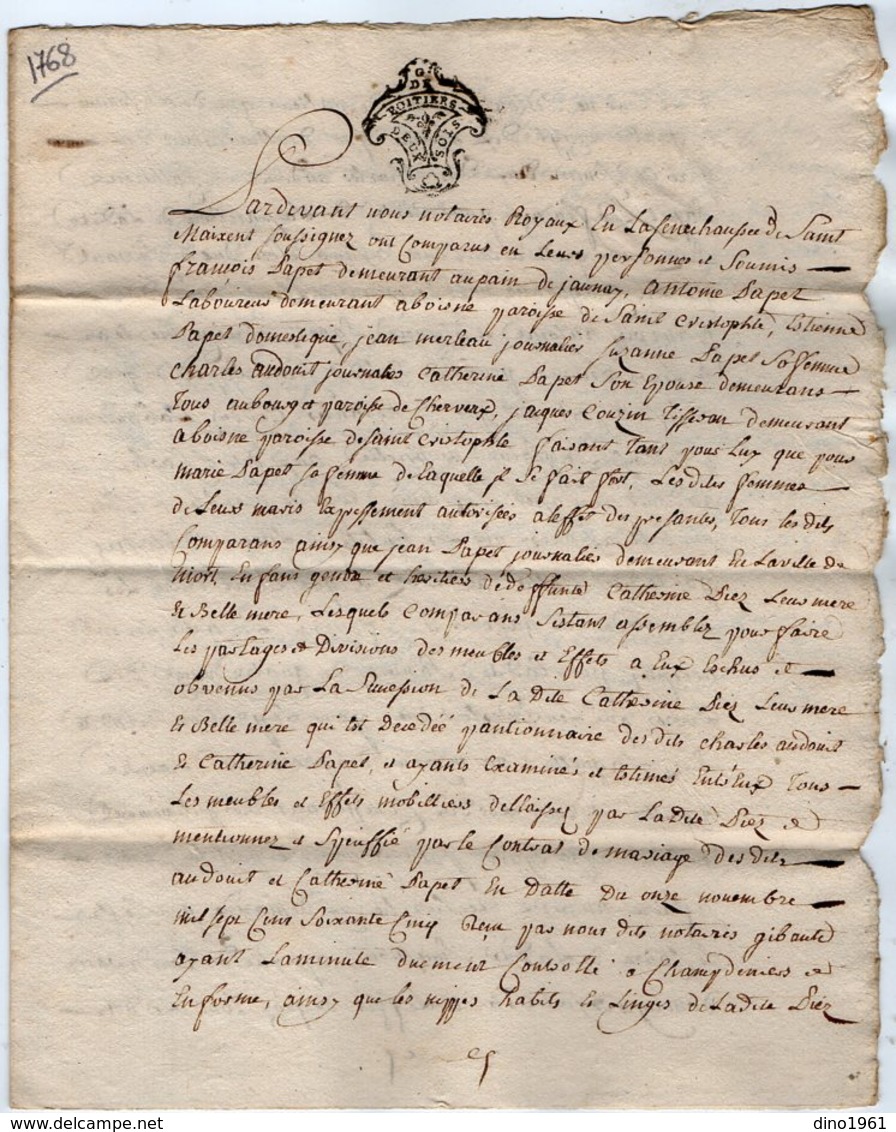 1768
G. DE
POITIERS
DEUX SOLS
Pardevant nous notaires Royaux En La Senechaussee de Saint
Maixent soussignez ont Comparus en Leurs personnes et Soumis
francois Papet demeurant au pain de jaunay, Antoine Papet
Laboureur demeurant a boisne paroisse de Saint Cristophle, Estienne
Papet domestique, jean merleau journalier Suzanne Papet Sa femme
Charles audouit journalier Catherine Papet Son Epouse demeurans
Tous au bourg et paroisse de Cherveux, jacques Couzin Tisseran demeurant
a boisne paroisse de saint Cristophle faisant Tant pour Lux que pour
marie Papet sa femme de Laquelle jl Se fait fort, Les dites femmes
de Leurs maris Expressement autorisées a leffet des presantes, Tous les dits
Comparans ainsy que jean Papet journalier demeurant En La ville de
niort, Enfans gendre et heritiers de deffunte Catherine Diez Leur mere
Et Belle mere, Lesquels Comparans Sestant assemblez pour faire
Les partages et Divisions des meubles et Effets a Eux Eschus et
obvenus par La Sucession de La Dite Catherine Diez Leur mere
Et Belle mere qui Est Decedée pantionnaire des dits Charles audouit
Et Catherine Papet, et ayants Examinés et Estimés Entr'Eux Tous
Les meubles et Effets mobilliers dellaissez par La Dite Diez et
mentionnez et Speciffié par le Contrat de mariage Des dits
audouit et Catherine Papet En Datte Du onze novembre
mil sept Cent Soixante Cinq Reçu par nous dits notaires gibault
ayant La minute duement Controllé a Champdeniers et
En forme, ainsy que les nippes habits Et Linges de La dite Diez
dino1961